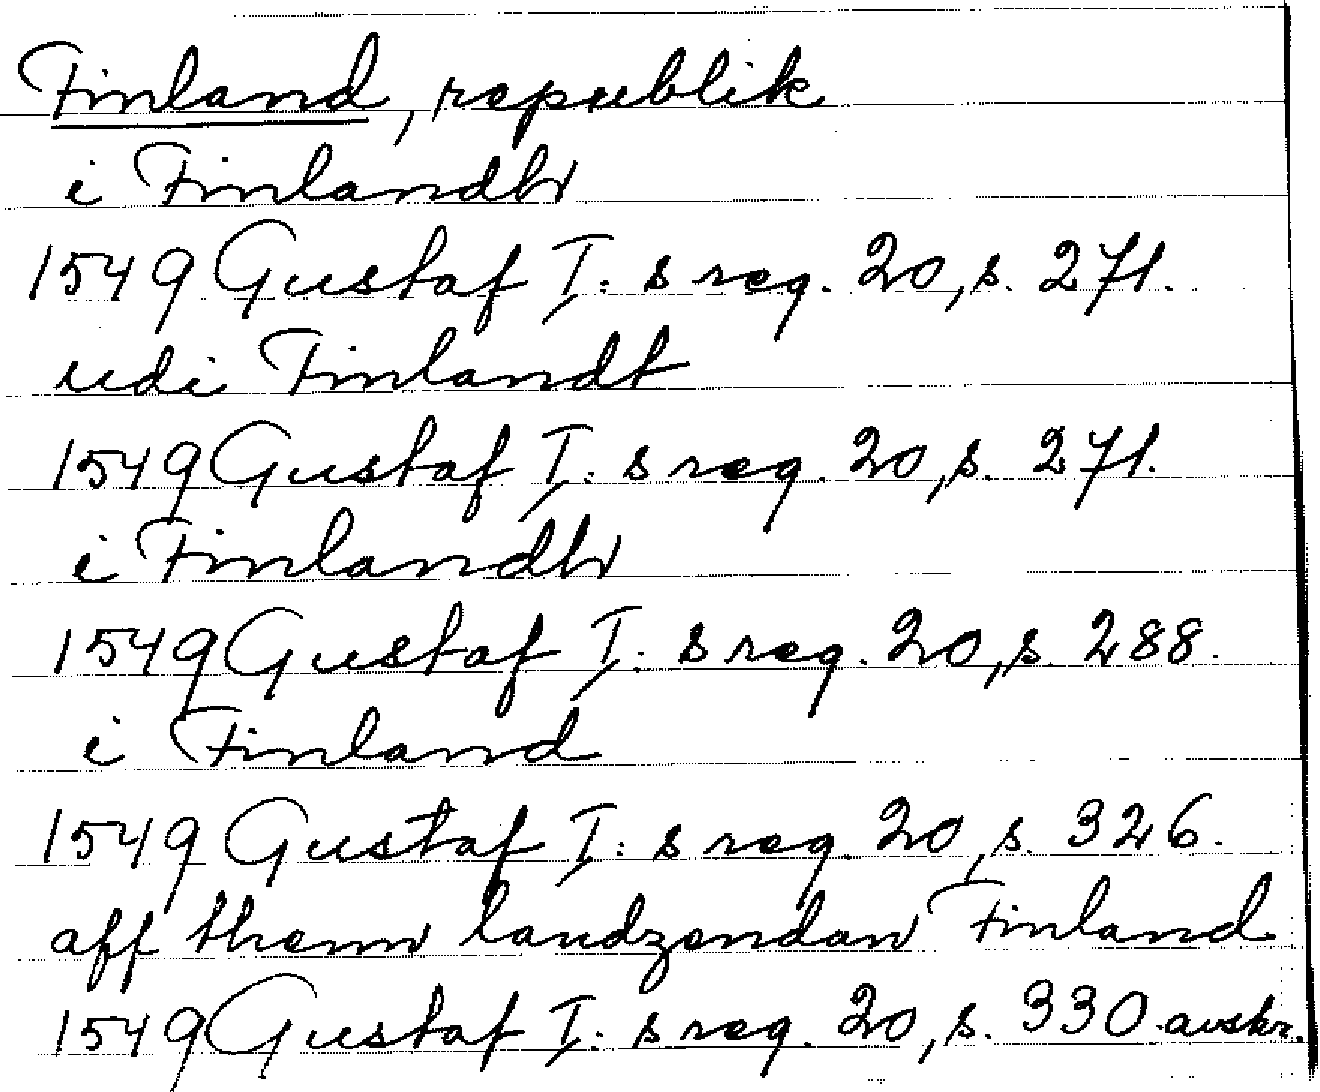 Finland, republik
i Finlandh
1549 Gustaf I:s reg. 20, s. 271.
udi Finlandt
1549 Gustaf I:s reg. 20, s. 271.
i Finlandh
1549 Gustaf I:s reg. 20, s. 288.
i Finland
1549 Gustaf I:s reg. 20, s. 326.
aff them landzendan Finland
1549 Gustaf I:s reg. 20, s. 330 avskr.